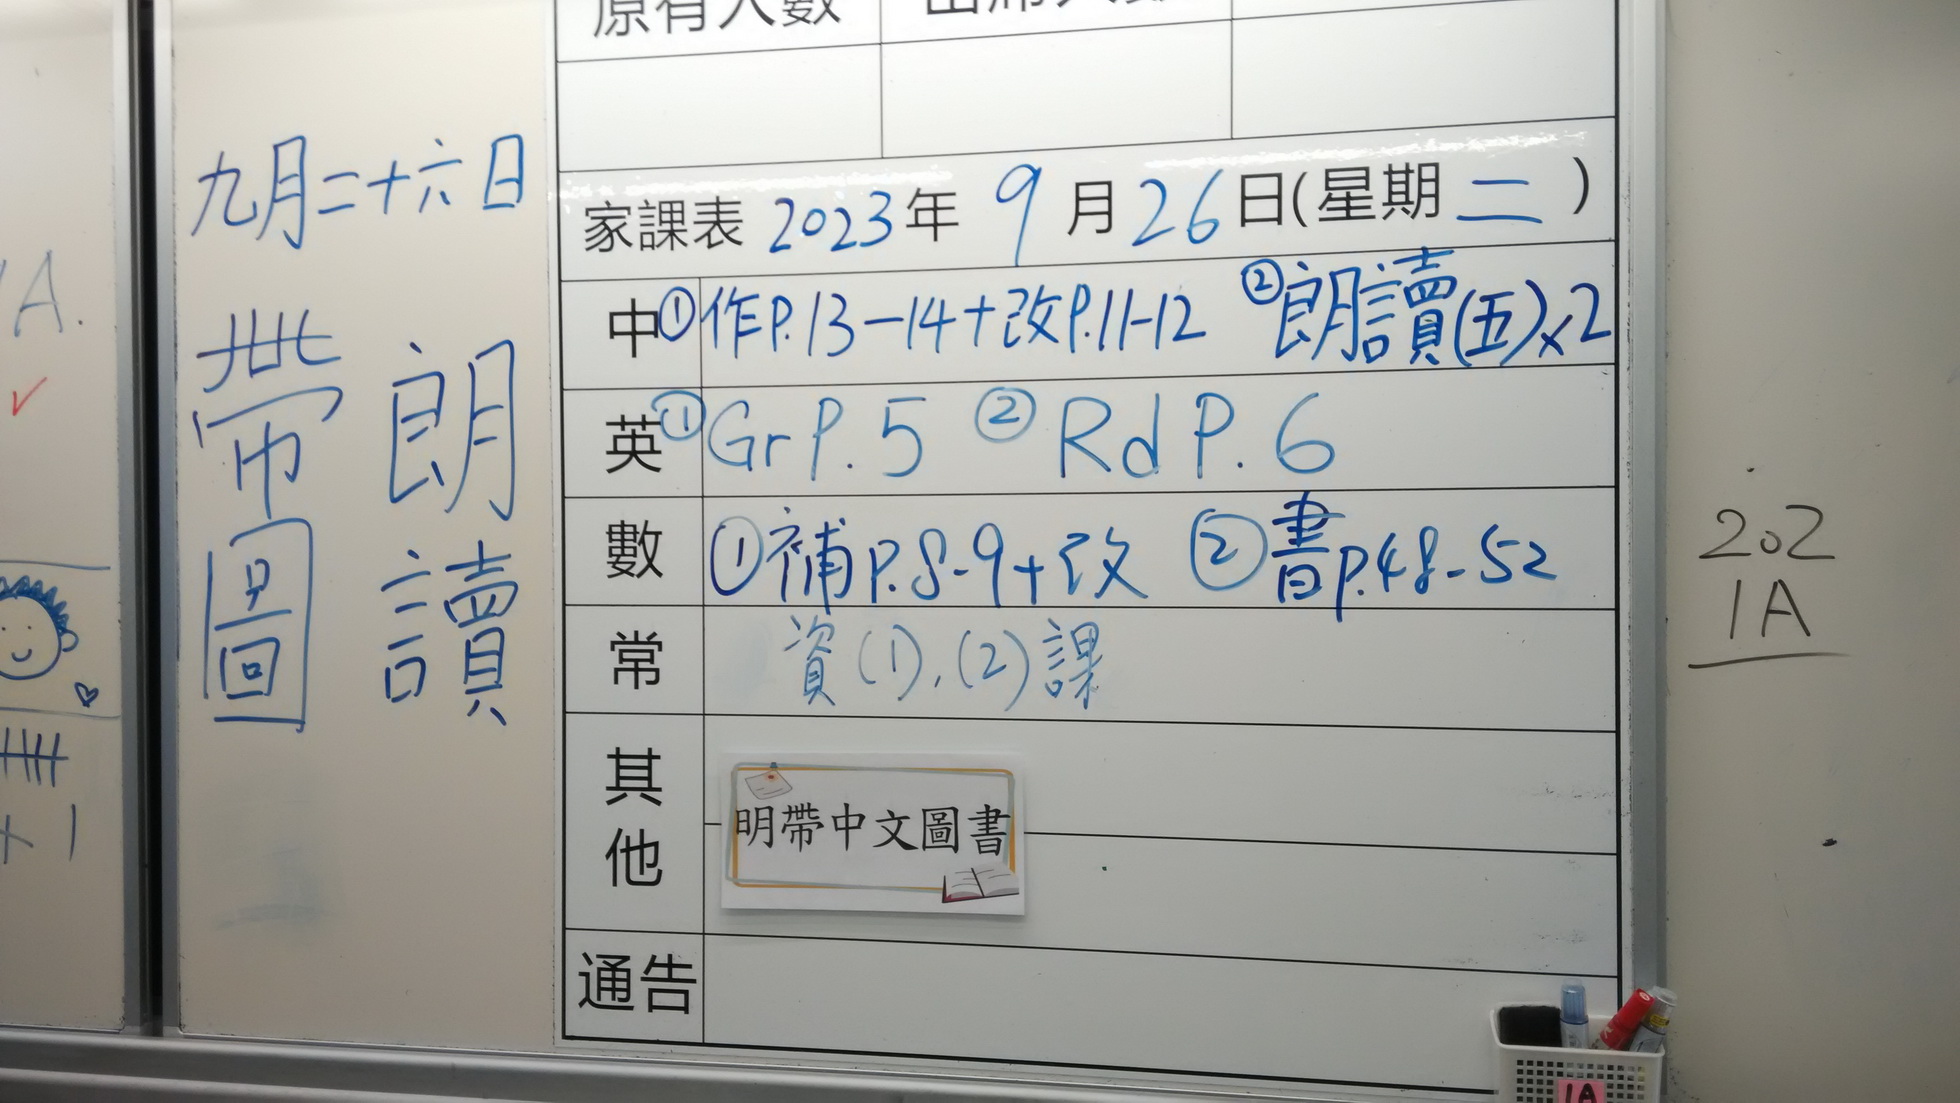 原有人數
A.
九月二十六日
朗讀
帶圖
家課表 2023年 9月26日(星期二)
中 ①作P.13-14+改P.11-12 ②朗讀(五)x2
英 ①Gr P.5 ②Rd P.6
數 ①補P.8-9+改 ②書P.48-52
常 資(1),(2)課
其他
明帶中文圖書
通告
202
1A
+1
1A